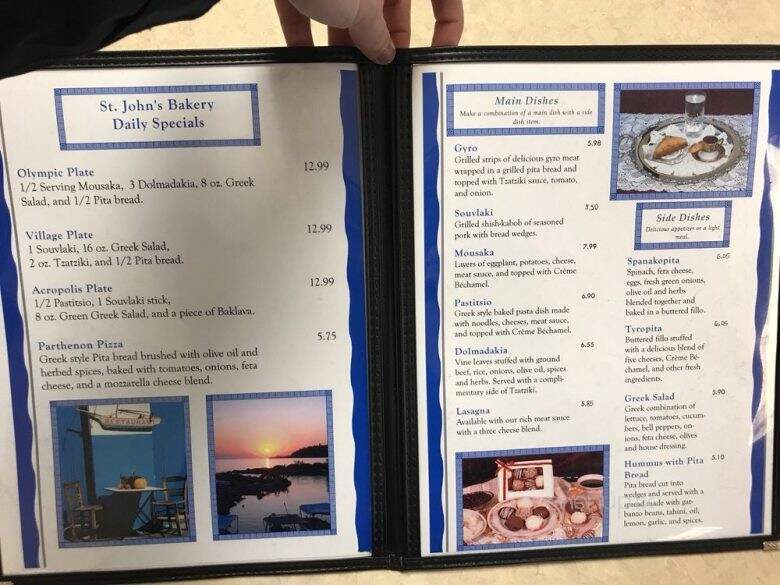 St. John's Bakery
Daily Specials
Olympic Plate 12.99
1/2 Serving Mousaka, 3 Dolmadakia, 8 oz. Greek
Salad, and 1/2 Pita bread.
Village Plate 12.99
1 Souvlaki, 16 oz. Greek Salad,
2 oz. Tzatziki, and 1/2 Pita bread.
Acropolis Plate 12.99
1/2 Pastitsio, 1 Souvlaki stick,
8 oz. Green Greek Salad, and a piece of Baklava.
Parthenon Pizza 5.75
Greek style Pita bread brushed with olive oil and
herbed spices, baked with tomatoes, onions, feta
cheese, and a mozzarella cheese blend.
RESTAURANT
Main Dishes
Make a combination of a main dish with a side
dish item.
Gyro 5.98
Grilled strips of delicious gyro meat
wrapped in a grilled pita bread and
topped with Tzatziki sauce, tomato,
and onion.
Souvlaki 5.50
Grilled shish-kabob of seasoned
pork with bread wedges.
Mousaka 7.99
Layers of eggplant, potatoes, cheese,
meat sauce, and topped with Crème
Béchamel.
Pastitsio 6.90
Greek style baked pasta dish made
with noodles, cheeses, meat sauce,
and topped with Crème Béchamel.
Dolmadakia 6.55
Vine leaves stuffed with ground
beef, rice, onions, olive oil, spices
and herbs. Served with a compli-
mentary side of Tzatziki.
Lasagna 5.85
Available with our rich meat sauce
with a three cheese blend.
Side Dishes
Delicious appetizer or a light
meal.
Spanakopita 6.05
Spinach, feta cheese,
eggs, fresh green onions,
olive oil and herbs
blended together and
baked in a buttered fillo.
Tyropita 6.05
Buttered fillo stuffed
with a delicious blend of
five cheeses, Crème Bé-
chamel, and other fresh
ingredients.
Greek Salad 5.90
Greek combination of
lettuce, tomatoes, cucum-
bers, bell peppers, on-
ions, feta cheese, olives
and house dressing.
Hummus with Pita 5.10
Bread
Pita bread cut into
wedges and served with a
spread made with gar-
banzo beans, tahini, oil,
lemon, garlic, and spices.